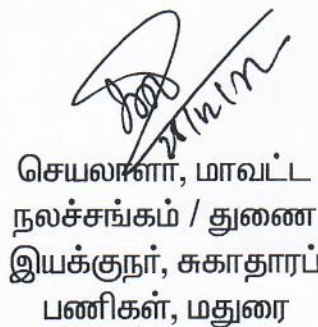 செயலாளர், மாவட்ட
நலச்சங்கம் / துணை
இயக்குநர், சுகாதாரப்
பணிகள், மதுரை